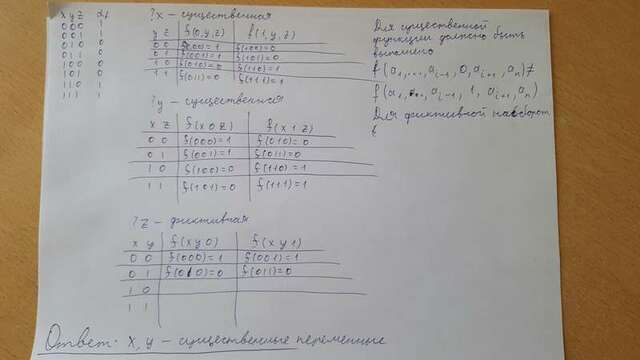 x y z αf
0 0 0 1
0 0 1 1
0 1 0 0
0 1 1 0
1 0 0 0
1 0 1 0
1 1 0 1
1 1 1 1
?x - существенная
y z f(0,y,z) f(1,y,z)
0 0 f(000)=1 f(100)=0
0 1 f(001)=1 f(101)=0
1 0 f(010)=0 f(110)=1
1 1 f(011)=0 f(111)=1
?y - существенная
x z f(x0z) f(x1z)
0 0 f(000)=1 f(010)=0
0 1 f(001)=1 f(011)=0
1 0 f(100)=0 f(110)=1
1 1 f(101)=0 f(111)=1
?z - фиктивная
x y f(xy0) f(xy1)
0 0 f(000)=1 f(001)=1
0 1 f(010)=0 f(011)=0
1 0
1 1
Для существенной
функции должно быть
выполнено
f(a1,...,ai-1, 0, ai+1, an)≠
f(a1,...,ai-1, 1, ai+1, an)
Для фиктивной наоборот
Ответ: x, y - существенные переменные